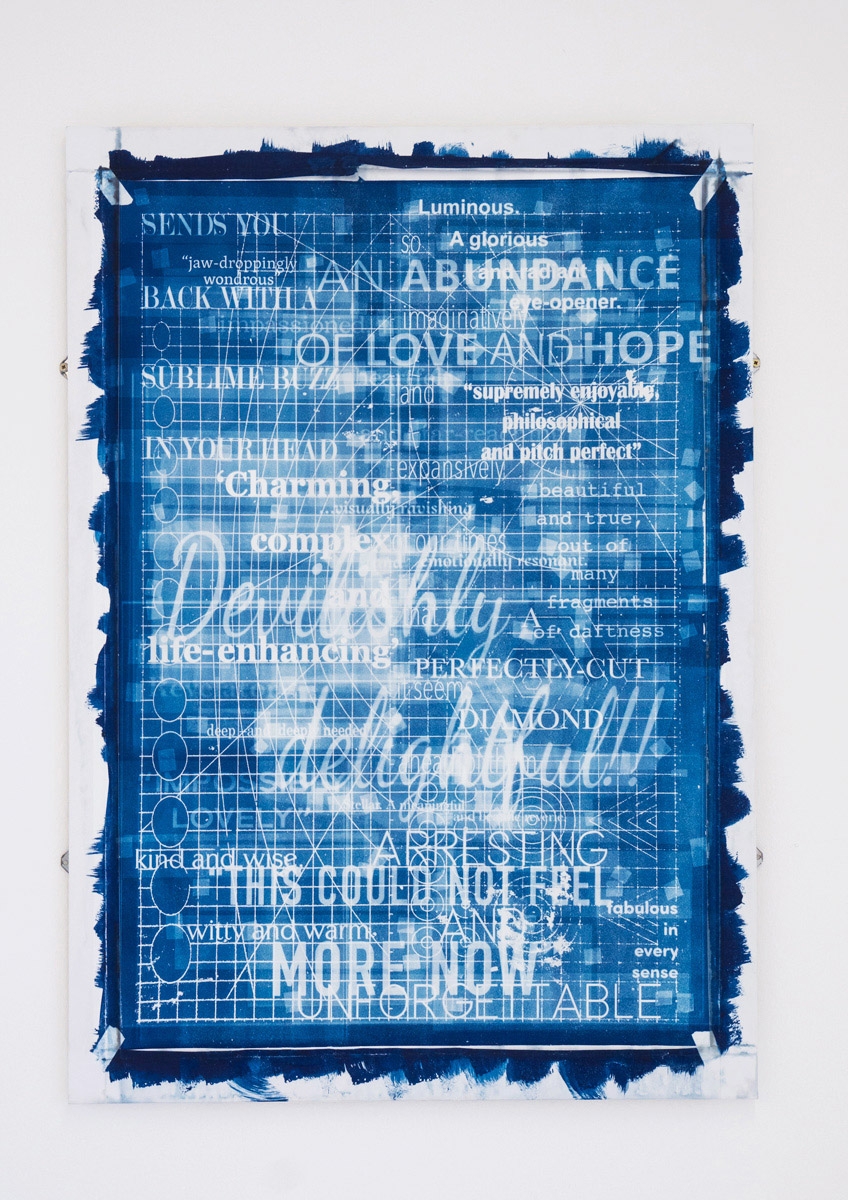 Luminous.
SENDS YOU
so
A glorious
"jaw-droppingly
wondrous"
AN ABUNDANCE
and radiant
BACK WITH A
eye-opener.
imaginatively
impassioned
OF LOVE AND HOPE
SUBLIME BUZZ
and
"supremely enjoyable,
philosophical
and pitch perfect"
IN YOUR HEAD
expansively
'Charming,
beautiful
...visually ravishing
and true,
complex
our times
out of
emotionally resonant.
many
Devilishly
and
fragments
A
of daftness
life-enhancing'
PERFECTLY-CUT
seem
deep and deeply needed
DIAMOND
delightful!!
LOVELY
ARRESTING
kind and wise.
"THIS COULD NOT FEEL
fabulous
AND
in
witty and warm.
every
MORE NOW
sense
UNFORGETTABLE